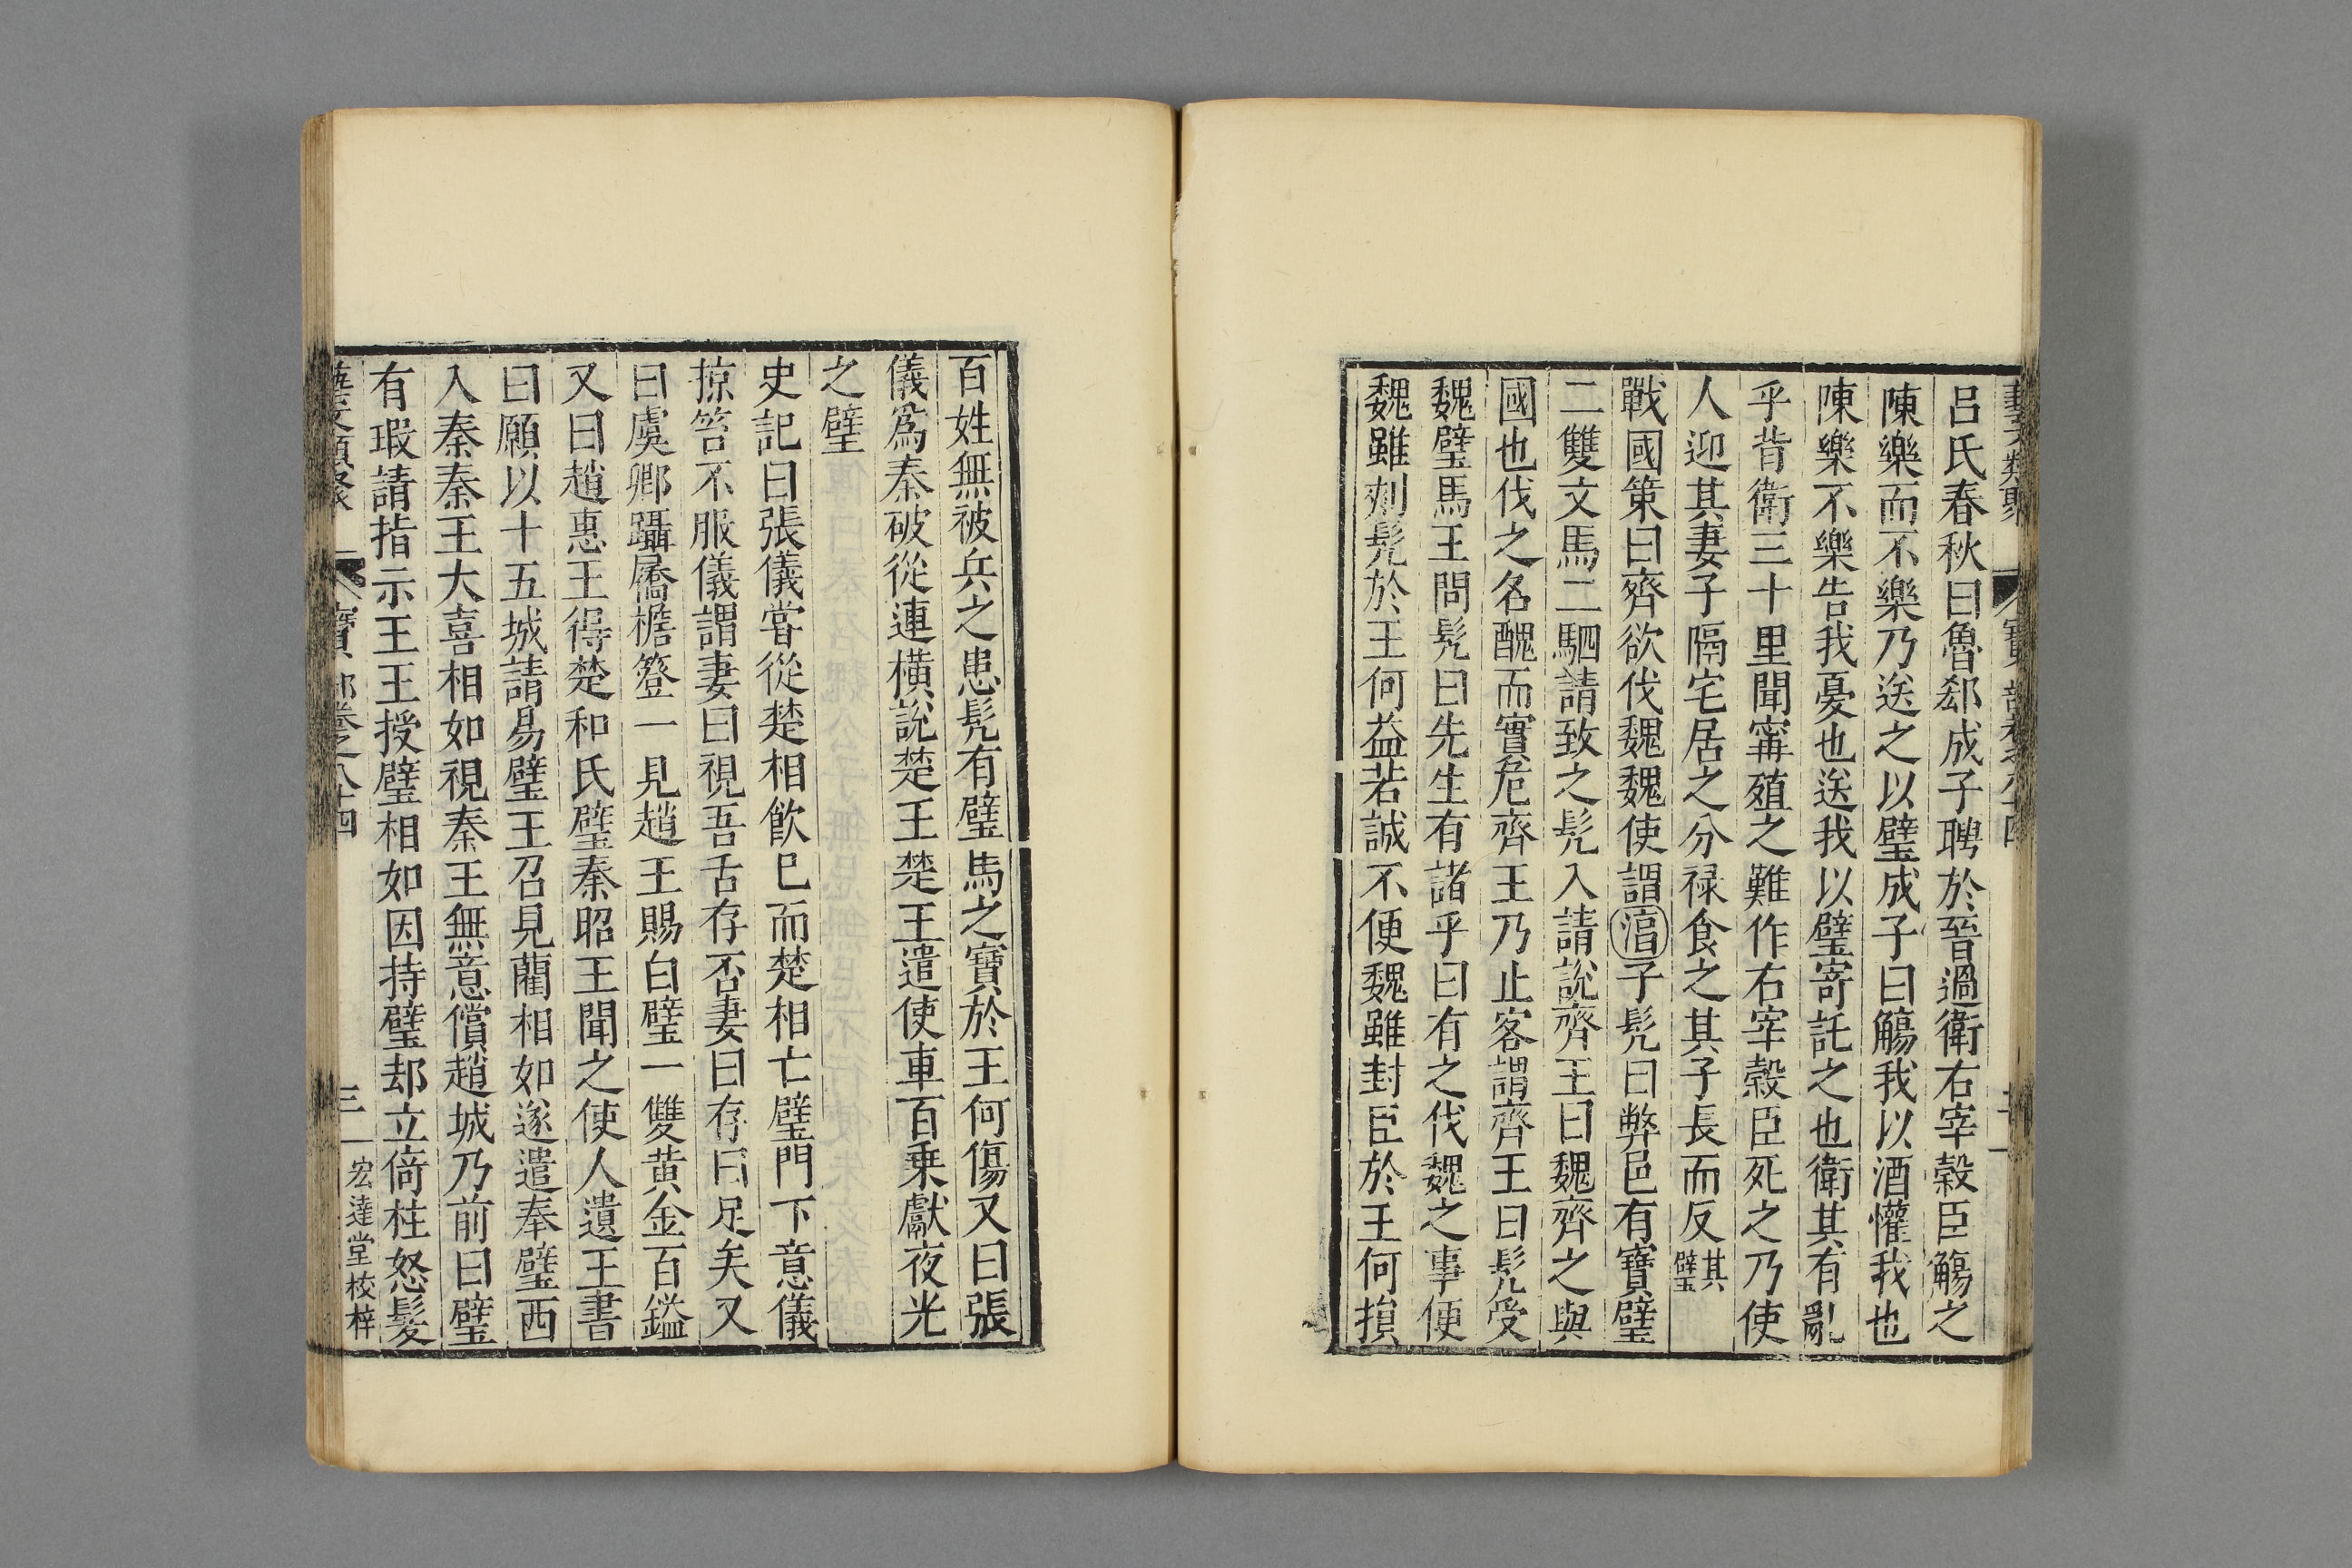 藝文類聚 寶部卷之八十四
呂氏春秋曰魯郄成子聘於晉過衛右宰榖臣觴之
陳樂而不樂乃送之以璧成子曰觴我以酒懽我也
陳樂不樂告我憂也送我以璧寄託之也衛其有亂
乎背衛三十里聞甯殖之難作右宰榖臣死之乃使
人迎其妻子隔宅居之分祿食之其子長而反其璧
戰國策曰齊欲伐魏魏使謂淳子髠曰弊邑有寶璧
二雙文馬二駟請致之髠入請說齊王曰魏齊之與
國也伐之名醜而實危齊王乃止客謂齊王曰髠受
魏璧馬王問髠曰先生有諸乎曰有之伐魏之事便
魏雖刺髠於王何益若誠不便魏雖封臣於王何損
百姓無被兵之患髠有璧馬之寶於王何傷又曰張
儀爲秦破從連橫說楚王楚王遣使車百乗獻夜光
之璧
史記曰張儀甞從楚相飲巳而楚相亡璧門下意儀
掠笞不服儀謂妻曰視吾舌存否妻曰存曰足矣又
曰虞卿躡屩檐簦一見趙王賜白璧一雙黃金百鎰
又曰趙惠王得楚和氏璧秦昭王聞之使人遺王書
曰願以十五城請易璧王召見藺相如遂遣奉璧西
入秦秦王大喜相如視秦王無意償趙城乃前曰璧
有瑕請指示王王授璧相如因持璧却立倚柱怒髮
藝文類聚 寶部卷之八十四 三 宏達堂校梓